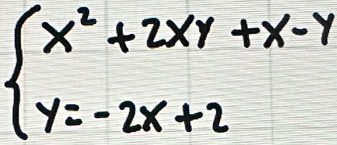 x² + 2xy + x - y
y = -2x + 2